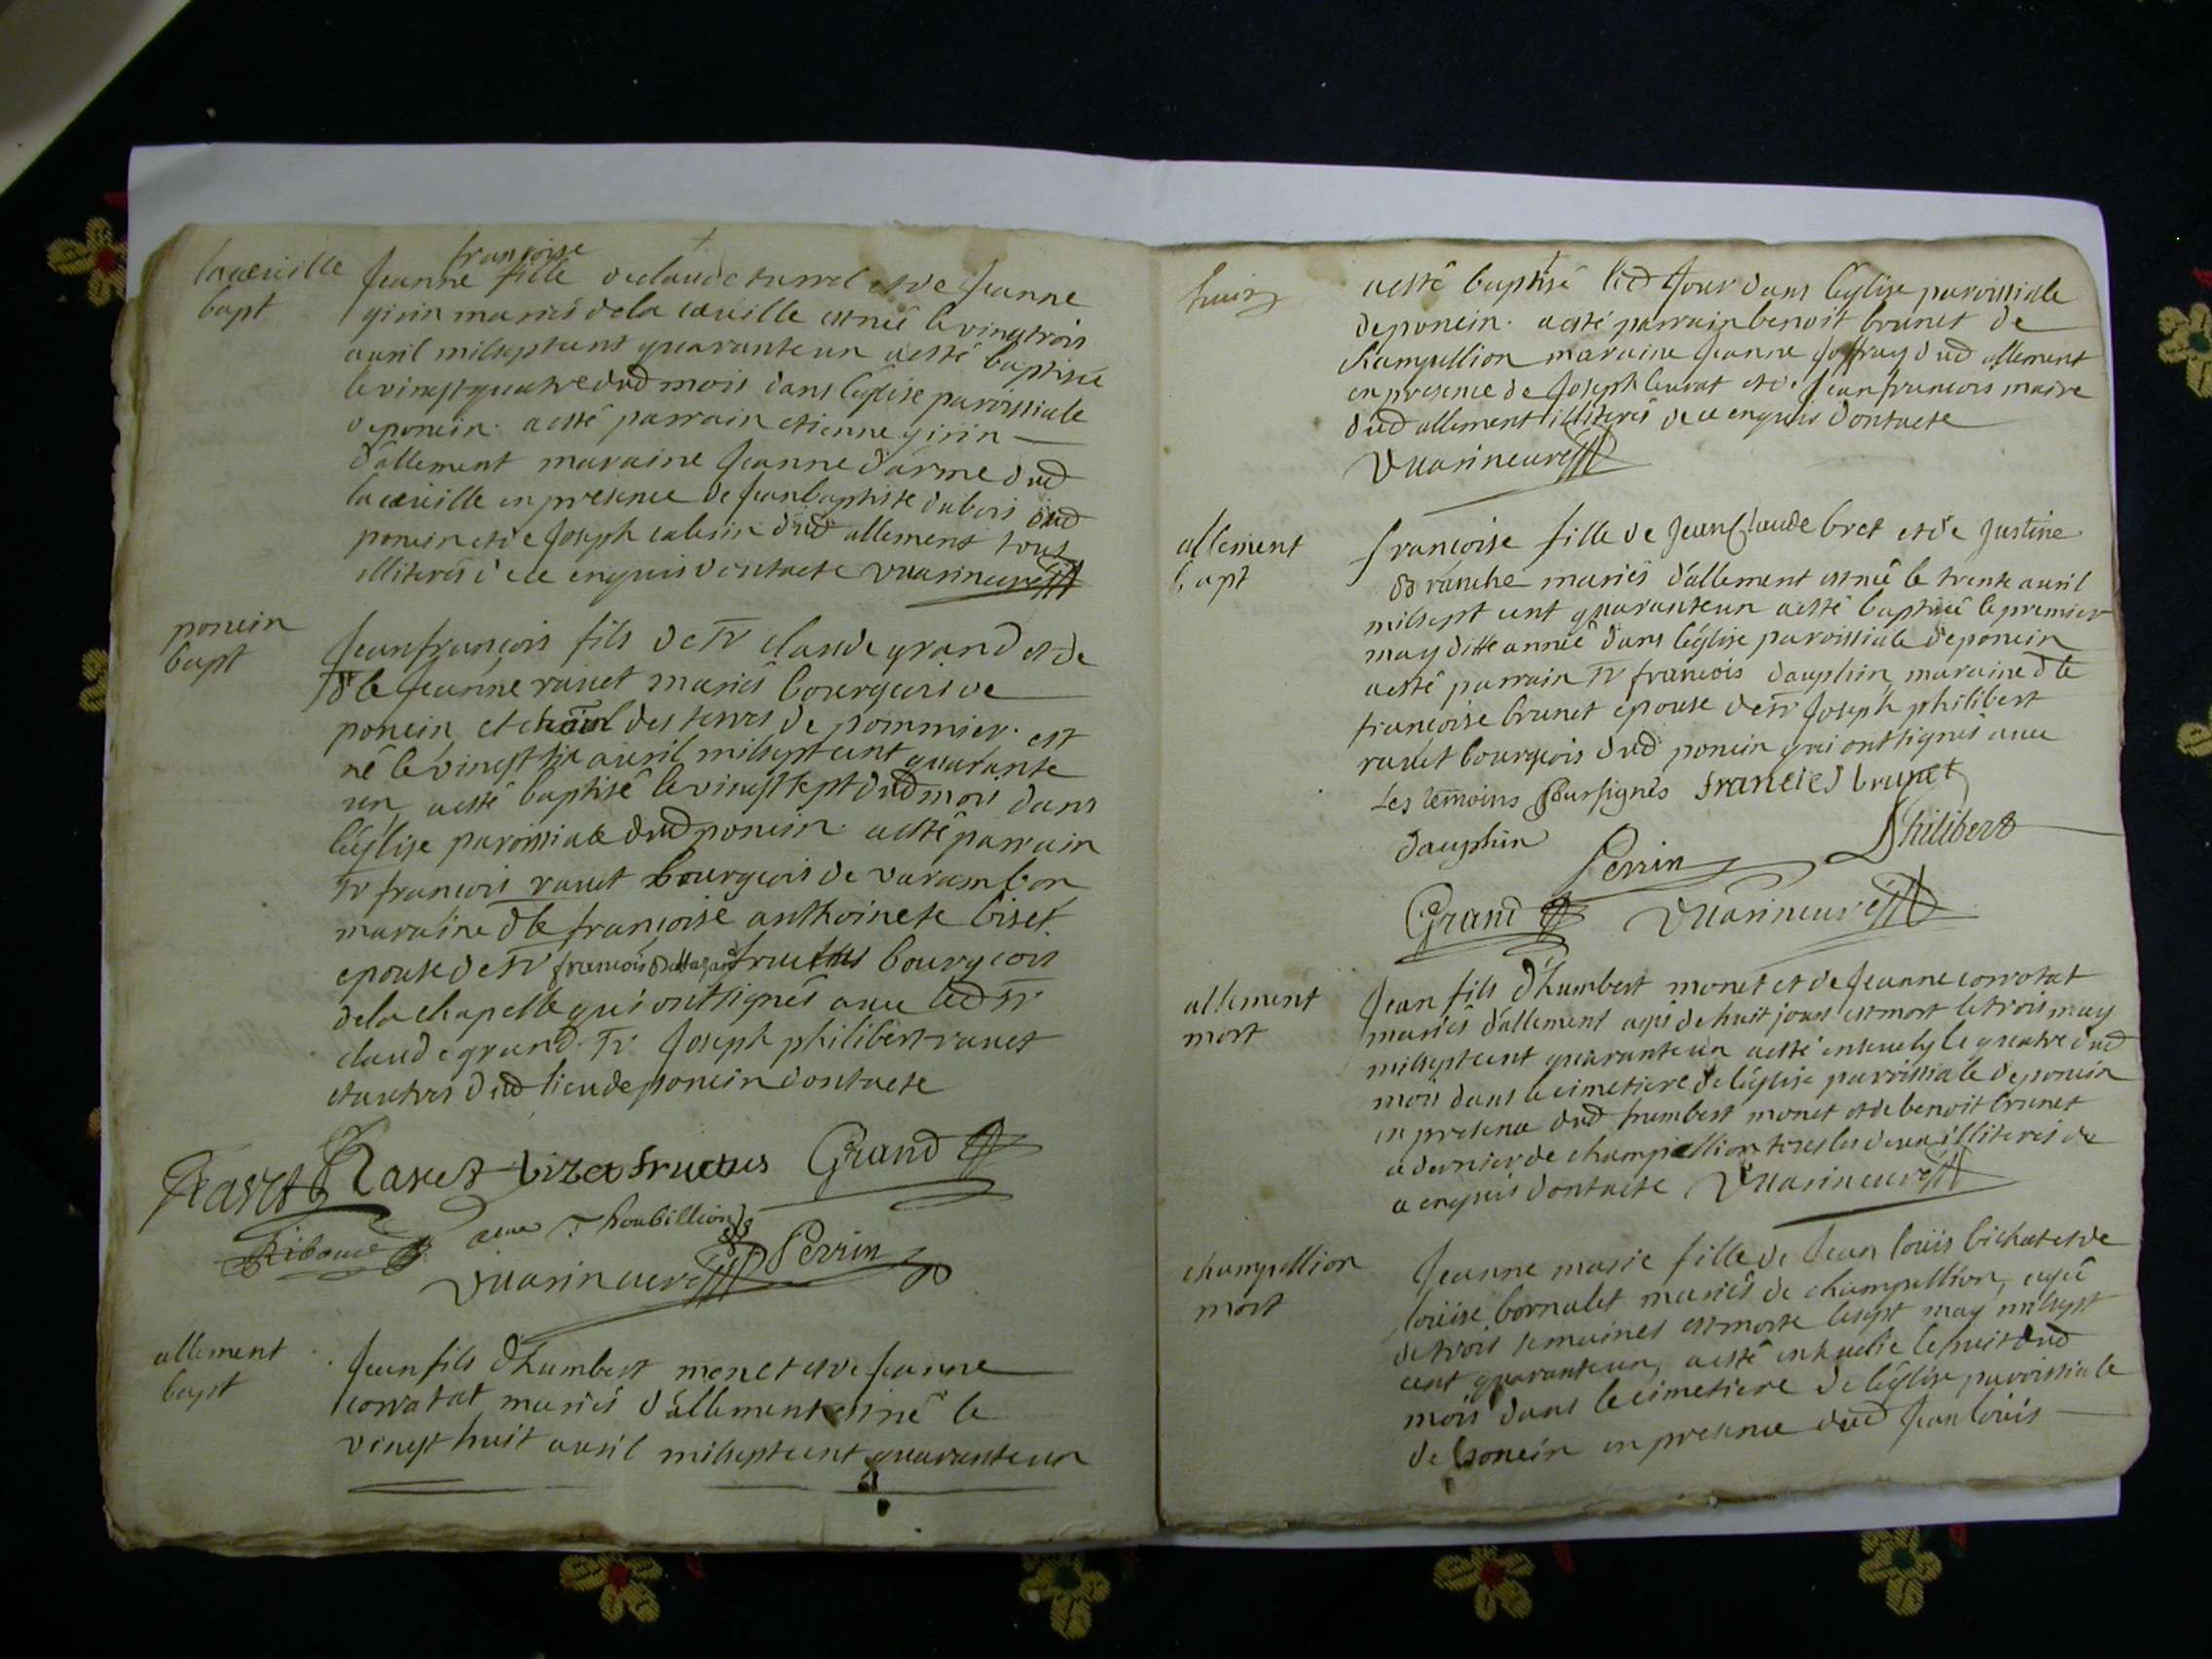 lacueille
bapt
françoise
Jeanne fille de claude turrel et de Jeanne
girin mariés de la cueille est née le vingtrois
auril milseptcent quarante un a esté baptisée
le vingtquatre dud mois dans l'eglise paroissiale
de poncin. a esté parrain etienne girin
d'allement maraine Jeanne d'arme dud
la cueille en presence de Jean baptiste dubois dud
poncin et de Joseph dud allement tous
illiterés de ce enquis dont acte vuarin curé
poncin
bapt
Jean françois fils de Sr claude grand et de
dlle Jeanne rauet mariés bourgeois de
poncin et des terres de pommier. est
né le vingt six auril milsept cent quarante
un, a esté baptisé le vingt sept dud mois dans
l'eglise paroissiale dud poncin. a esté parrain
Sr françois rauet bourgeois de varambon
maraine dlle françoise anthoinete biset
epouse de Sr françois fructus bourgeois
de la chapelle qui ont signés auec led Sr
claude grand. Sr Joseph philibert rauet
et autres dud lieu de poncin dont acte
Rauet Rauet bizet fructus Grand
Vuarin curé Perrin
allement
bapt
Jean fils d'humbert monet et de Jeanne
corratat mariés d'allement est né le
vingt huit auril milseptcent quarante un
huit
a esté baptisé led Jour dans l'eglise paroissiale
de poncin. a esté parrain benoit brunet de
champellion maraine Jeanne Joffray dud allement
en presence de Joseph leurat et de Jean francois maire
dud allement illiterés de ce enquis dont acte
Vuarin curé
allement
bapt
françoise fille de Jean Claude bret et de Justine
branche mariés d'allement est née le trente auril
milsept cent quarante un a esté baptisée le premier
may ditte année dans l'eglise paroissiale de poncin
a esté parrain Sr francois dauphin, maraine dlle
francoise brunet epouse de Sr Joseph philibert
rauet bourgeois dud poncin qui ont signés auec
Les temoins soussignés brunet
dauphin Perrin Philibert
Grand Vuarin curé
allement
mort
Jean fils d'humbert monet et de Jeanne corratat
mariés d'allement agé de huit jours est mort le trois may
milseptcent quarante un a esté enseuely le quatre dud
mois dans le cimetiere de l'eglise paroissiale de poncin
en presence dud humbert monet et de benoit brunet
ce dernier de champellion tous les deux illiterés de
ce enquis dont acte Vuarin curé
champellion
mort
Jeanne marie fille de Jean louis bichat et de
louise bornalet mariés de champellion, agée
de trois semaines est morte le sept may milsept
cent quarante un, a esté enseuelie le huit dud
mois dans le cimetiere de l'eglise paroissiale
de poncin en presence dud Jean louis